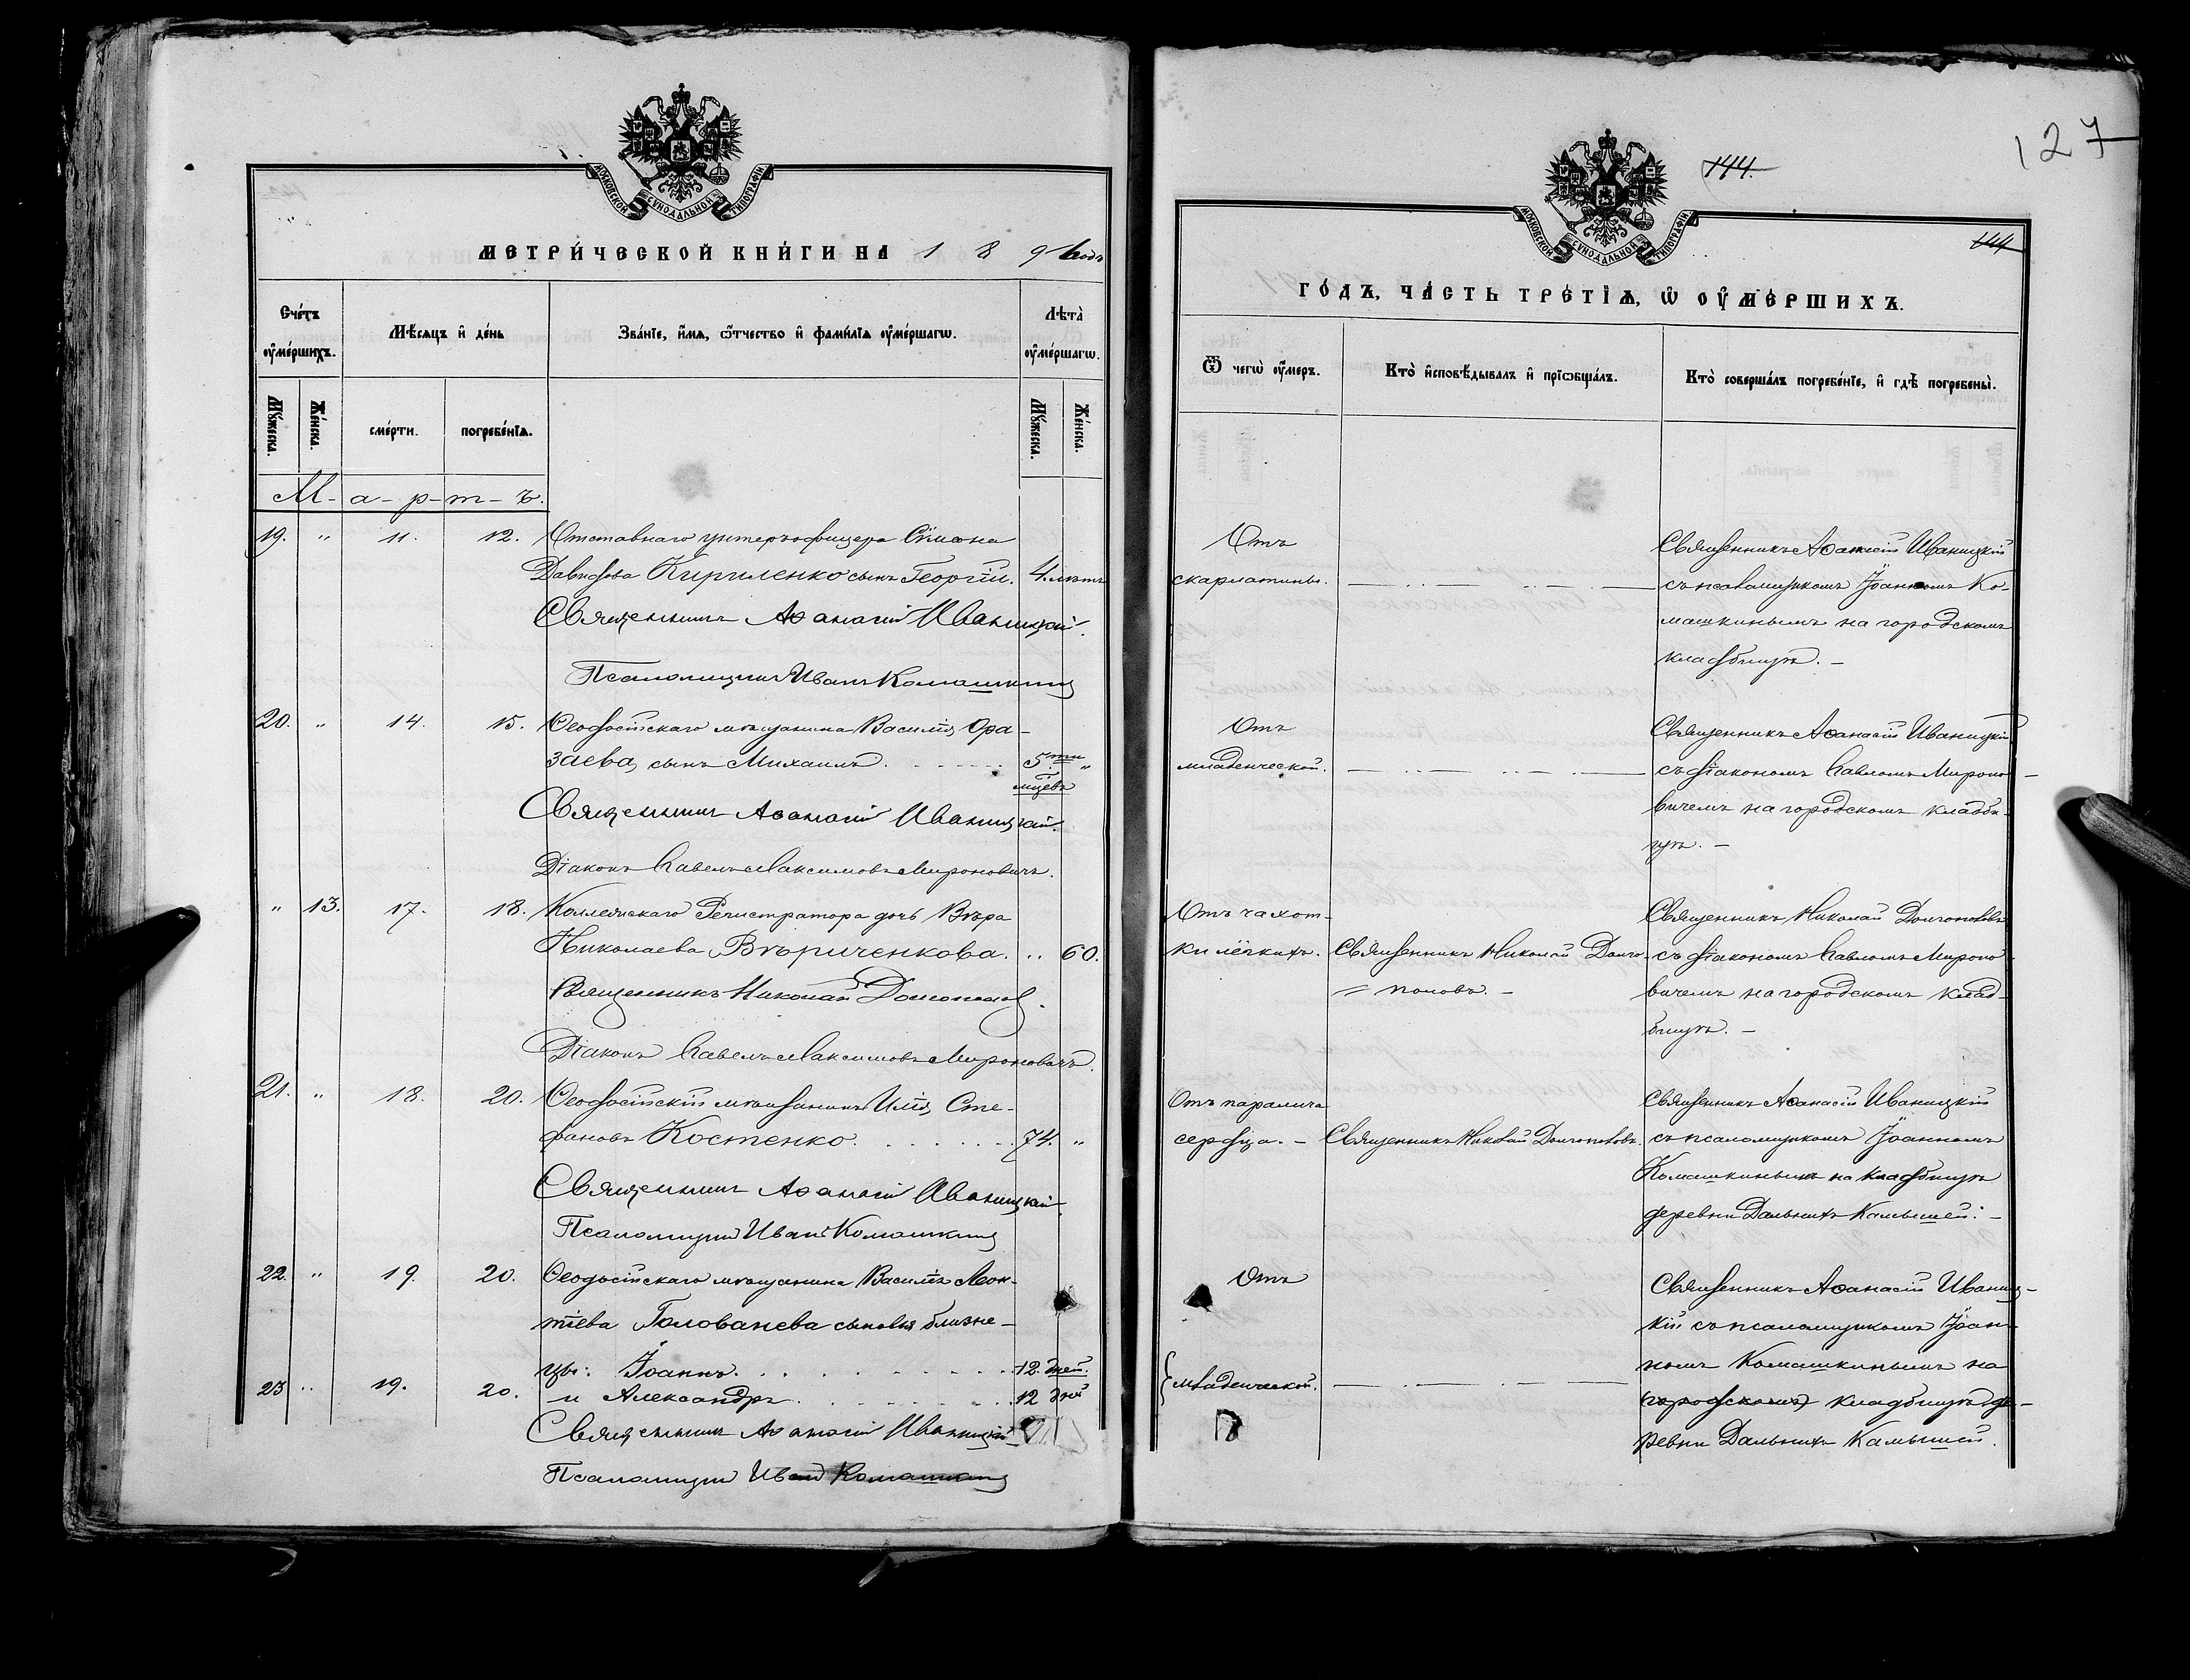 МОСКОВСКОЙ СѴНОДАЛЬНОЙ ТИПОГРАФІИ
МЕТРИ́ЧЕСКОЙ КНИ́ГИ НА 1 8 9 годъ
Сче́тъ оу҆ме́ршихъ.
Мѣ́сяцъ и҆ де́нь
Зва́нїе, и҆́мя, ѻ҆́тчество и҆ фами́лїя оу҆ме́ршагѡ.
Лѣта̀ оу҆ме́ршагѡ.
Мꙋ́жеска.
Же́нска.
сме́рти.
погребе́нїя.
Мꙋ́жеска.
Же́нска.
М-а-р-т-ъ.
19. " 11. 12. Отставнаго унтеръ-офицера Сѵмеона
Давидова Кириленко сынъ Георгій. 4. лѣтъ
Священникъ Аѳанасій Иваницкій.
Псаломщикъ Иванъ Комашкинъ
20. " 14. 15. Ѳеодосійскаго мѣщанина Василія Ора-
заева, сынъ Михаилъ. 5ти "
мцевъ
Священникъ Аѳанасій Иваницкій.
Діаконъ Павелъ Максимовъ Мироновичъ.
" 13. 17. 18. Коллежскаго Регистратора дочь Вѣра
Николаева Вѣриченкова. " 60.
Священникъ Николай Долгополовъ.
Діаконъ Павелъ Максимовъ Мироновичъ.
21. " 18. 20. Ѳеодосійскій мѣщанинъ Илія Сте-
фановъ Костенко. 74. "
Священникъ Аѳанасій Иваницкій
Псаломщикъ Иванъ Комашкинъ
22. " 19. 20. Ѳеодосійскаго мѣщанина Василія Леон-
тіева Голованева сыновья близне-
цы: Іоаннъ. 12. дней.
23 " 19. 20. и Александръ. 12 дней
Священникъ Аѳанасій Иваницкій
Псаломщикъ Иванъ Комашкинъ
127
144.
144
МОСКОВСКОЙ СѴНОДАЛЬНОЙ ТИПОГРАФІИ
ГО́ДЪ, ЧА́СТЬ ТРЕ́ТЇЯ, Ѡ҆ ОУ҆МЕ́РШИХЪ.
Ѿ чегѡ̀ оу҆́меръ.
Кто̀ и҆сповѣ́дывалъ и҆ прїѡбща́лъ.
Кто̀ соверша́лъ погребе́нїе, и҆ гдѣ̀ погребены̀.
Отъ
скарлатины.
Священникъ Аѳанасій Иваницкій
съ псаломщикомъ Іоанномъ Ко-
машкинымъ на городскомъ
кладбищѣ. -
Отъ
младенческой.
Священникъ Аѳанасій Иваницкій
съ діакономъ Павломъ Мироно-
вичемъ на городскомъ кладби-
щѣ. -
Отъ чахот-
ки лёгкихъ.
Священникъ Николай Долго-
= половъ. -
Священникъ Николай Долгополовъ
съ діакономъ Павломъ Мироно-
вичемъ на городскомъ клад-
бищѣ. -
Отъ паралича
сердца. -
Священникъ Николай Долгополовъ.
Священникъ Аѳанасій Иваницкій
съ псаломщикомъ Іоанномъ
Комашкинымъ на кладбищѣ
деревни Дальнихъ Камышей. -
Отъ
младенческой.
Священникъ Аѳанасій Иваниц-
кій съ псаломщикомъ Іоан-
номъ Комашкинымъ на
(городскомъ) кладбищѣ де-
ревни Дальнихъ Камышей.